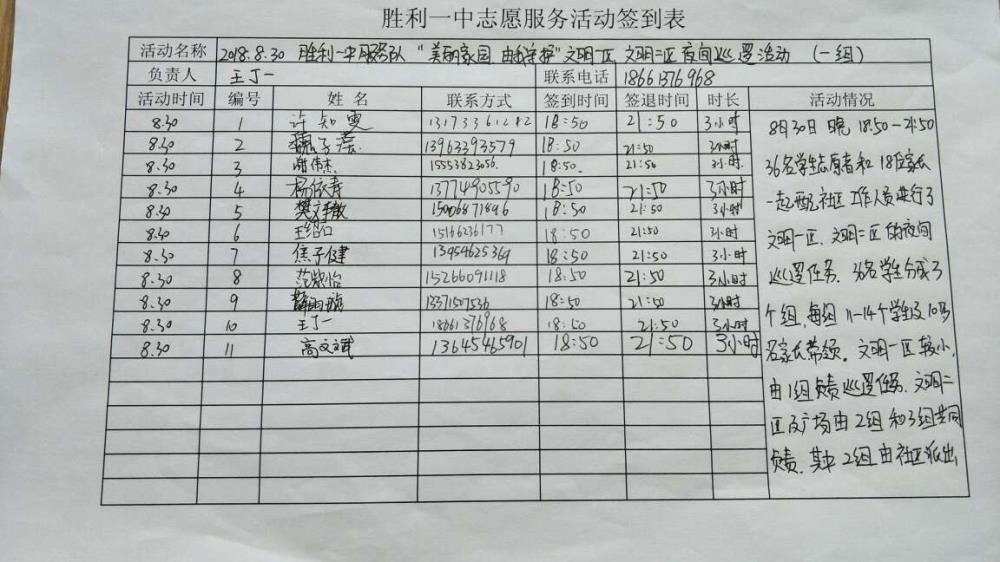 胜利一中志愿服务活动签到表
活动名称 2018.8.30 胜利一中服务队 "美丽家园 由我守护" 文明一区 文明二区夜间巡逻活动 (一组)
负责人 王丁一 联系电话 18661376968
活动时间 编号 姓名 联系方式 签到时间 签退时间 时长 活动情况
8.30 1 许知雯 13173361282 18:50 21:50 3小时
8.30 2 13963393579 18:50 21:50 3小时
8.30 3 谢伟杰 15553823056 18:50 21:50 3小时
8.30 4 杨依寿 13774905590 18:50 21:50 3小时
8.30 5 樊文敏 15006871896 18:50 21:50 3小时
8.30 6 15166236177 18:50 21:50 3小时
8.30 7 焦子健 13959625369 18:50 21:50 3小时
8.30 8 范紫怡 15266091118 18:50 21:50 3小时
8.30 9 13371507536 18:50 21:50 3小时
8.30 10 王丁一 18661376968 18:50 21:50 3小时
8.30 11 高文斌 13645465901 18:50 21:50 3小时
8月30日 晚 18:50-21:50
36名学生志愿者和18位家长
一起配合社区工作人员进行了
文明一区、文明二区的夜间
巡逻任务。36名学生分成了
个组,每组11-14个学生及10多
名家长带领。文明一区较小,
由1组负责巡逻任务,文明二
区及广场由2组和3组共同
负责,其中2组由社区派出